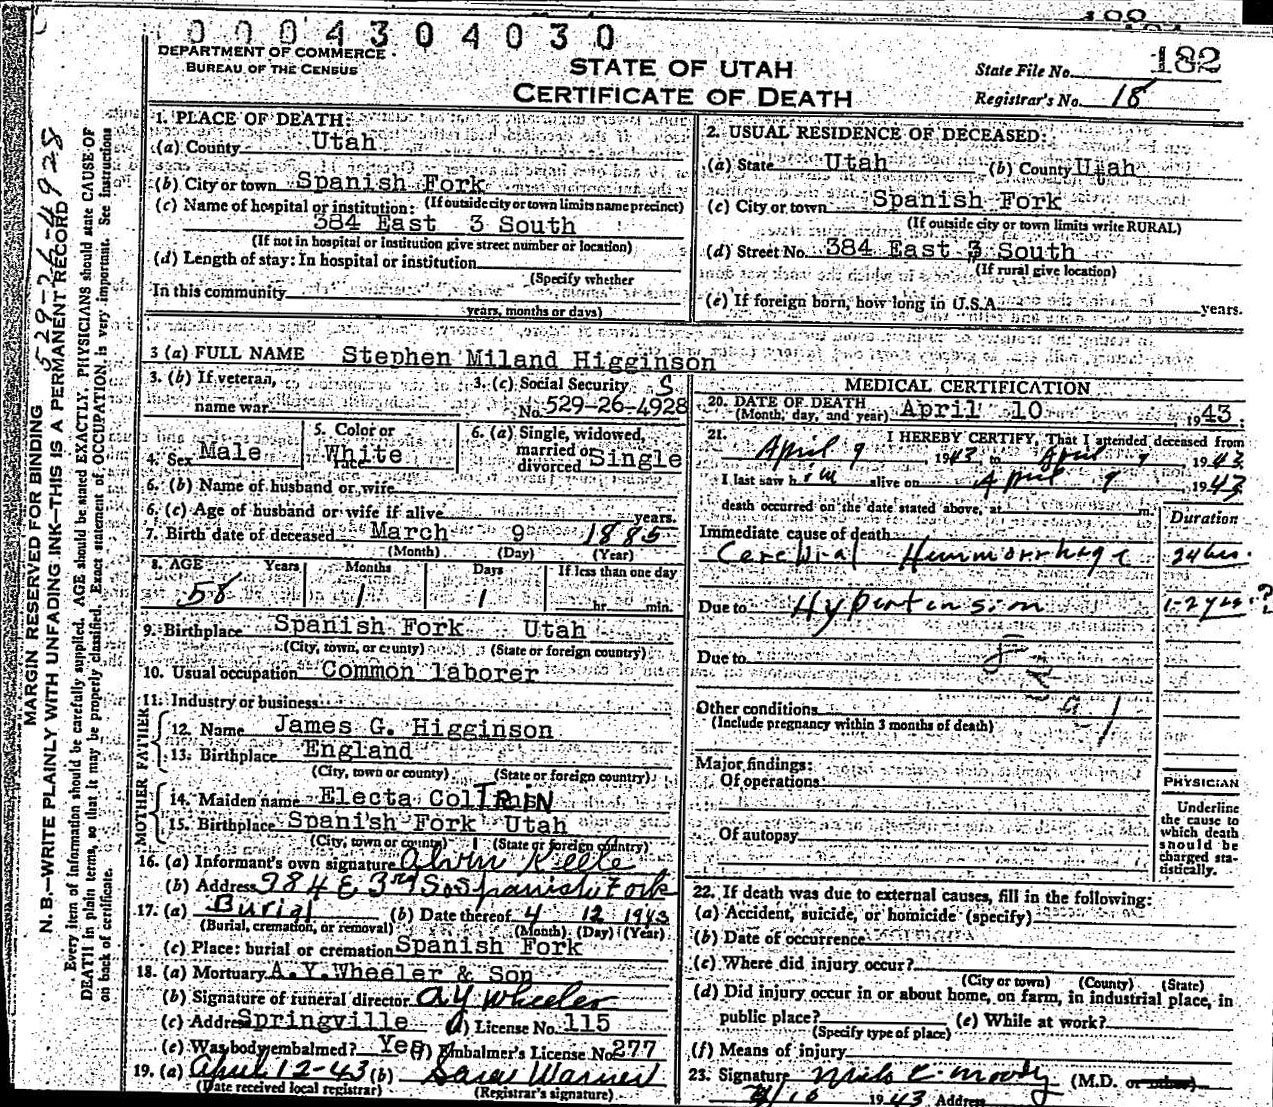 0004304030
182
DEPARTMENT OF COMMERCE
BUREAU OF THE CENSUS
STATE OF UTAH
CERTIFICATE OF DEATH
State File No. 182
Registrar's No. 18
MARGIN RESERVED FOR BINDING 529-26-4928
N. B.—WRITE PLAINLY WITH UNFADING INK—THIS IS A PERMANENT RECORD
Every item of information should be carefully supplied. AGE should be stated EXACTLY. PHYSICIANS should state CAUSE OF
DEATH in plain terms, so that it may be properly classified. Exact statement of OCCUPATION is very important. See instructions
on back of certificate.
1. PLACE OF DEATH:
(a) County Utah
(b) City or town Spanish Fork
(If outside city or town limits name precinct)
(c) Name of hospital or institution:
384 East 3 South
(If not in hospital or institution give street number or location)
(d) Length of stay: In hospital or institution
(Specify whether
In this community
years, months or days)
2. USUAL RESIDENCE OF DECEASED:
(a) State Utah (b) County Utah
(c) City or town Spanish Fork
(If outside city or town limits write RURAL)
(d) Street No. 384 East 3 South
(If rural give location)
(e) If foreign born, how long in U.S.A. years.
3 (a) FULL NAME Stephen Miland Higginson
3. (b) If veteran, name war
3. (c) Social Security S
No. 529-26-4928
4. Sex Male
5. Color or race White
6. (a) Single, widowed, married or divorced Single
6. (b) Name of husband or wife
6. (c) Age of husband or wife if alive years.
7. Birth date of deceased March 9 1885
(Month) (Day) (Year)
8. AGE Years Months Days If less than one day
58 1 1 hr. min.
9. Birthplace Spanish Fork Utah
(City, town, or county) (State or foreign country)
10. Usual occupation Common laborer
11. Industry or business
FATHER
12. Name James G. Higginson
13. Birthplace England
(City, town or county) (State or foreign country)
MOTHER
14. Maiden name Electa ColTRIN
15. Birthplace Spanish Fork Utah
(City, town or county) (State or foreign country)
16. (a) Informant's own signature Alvin Keele
(b) Address 384 E 3rd So Spanish Fork
17. (a) Burial (b) Date thereof 4 12 1943
(Burial, cremation, or removal) (Month) (Day) (Year)
(c) Place: burial or cremation Spanish Fork
18. (a) Mortuary A.Y. Wheeler & Son
(b) Signature of funeral director A Y Wheeler
(c) Address Springville (d) License No. 115
(e) Was body embalmed? Yes (f) Embalmer's License No. 277
19. (a) April 12-43 (b) Sara Warner
(Date received local registrar) (Registrar's signature)
MEDICAL CERTIFICATION
20. DATE OF DEATH
(Month, day, and year) April 10, 1943.
21. I HEREBY CERTIFY, That I attended deceased from
April 9, 1943 to April 9, 1943
I last saw him alive on April 9 1943
death occurred on the date stated above, at m.
Duration
Immediate cause of death
Cerebral Hemmorrhage 24 hrs.
Due to Hypertension 1-2 yrs.?
Due to
Other conditions
(Include pregnancy within 3 months of death)
Major findings:
Of operations
Of autopsy
PHYSICIAN
Underline
the cause to
which death
should be
charged sta-
tistically.
22. If death was due to external causes, fill in the following:
(a) Accident, suicide, or homicide (specify)
(b) Date of occurrence
(c) Where did injury occur?
(City or town) (County) (State)
(d) Did injury occur in or about home, on farm, in industrial place, in
public place? (e) While at work?
(Specify type of place)
(f) Means of injury
23. Signature Milo C. Moody (M.D. or other)
4/10 1943 Address